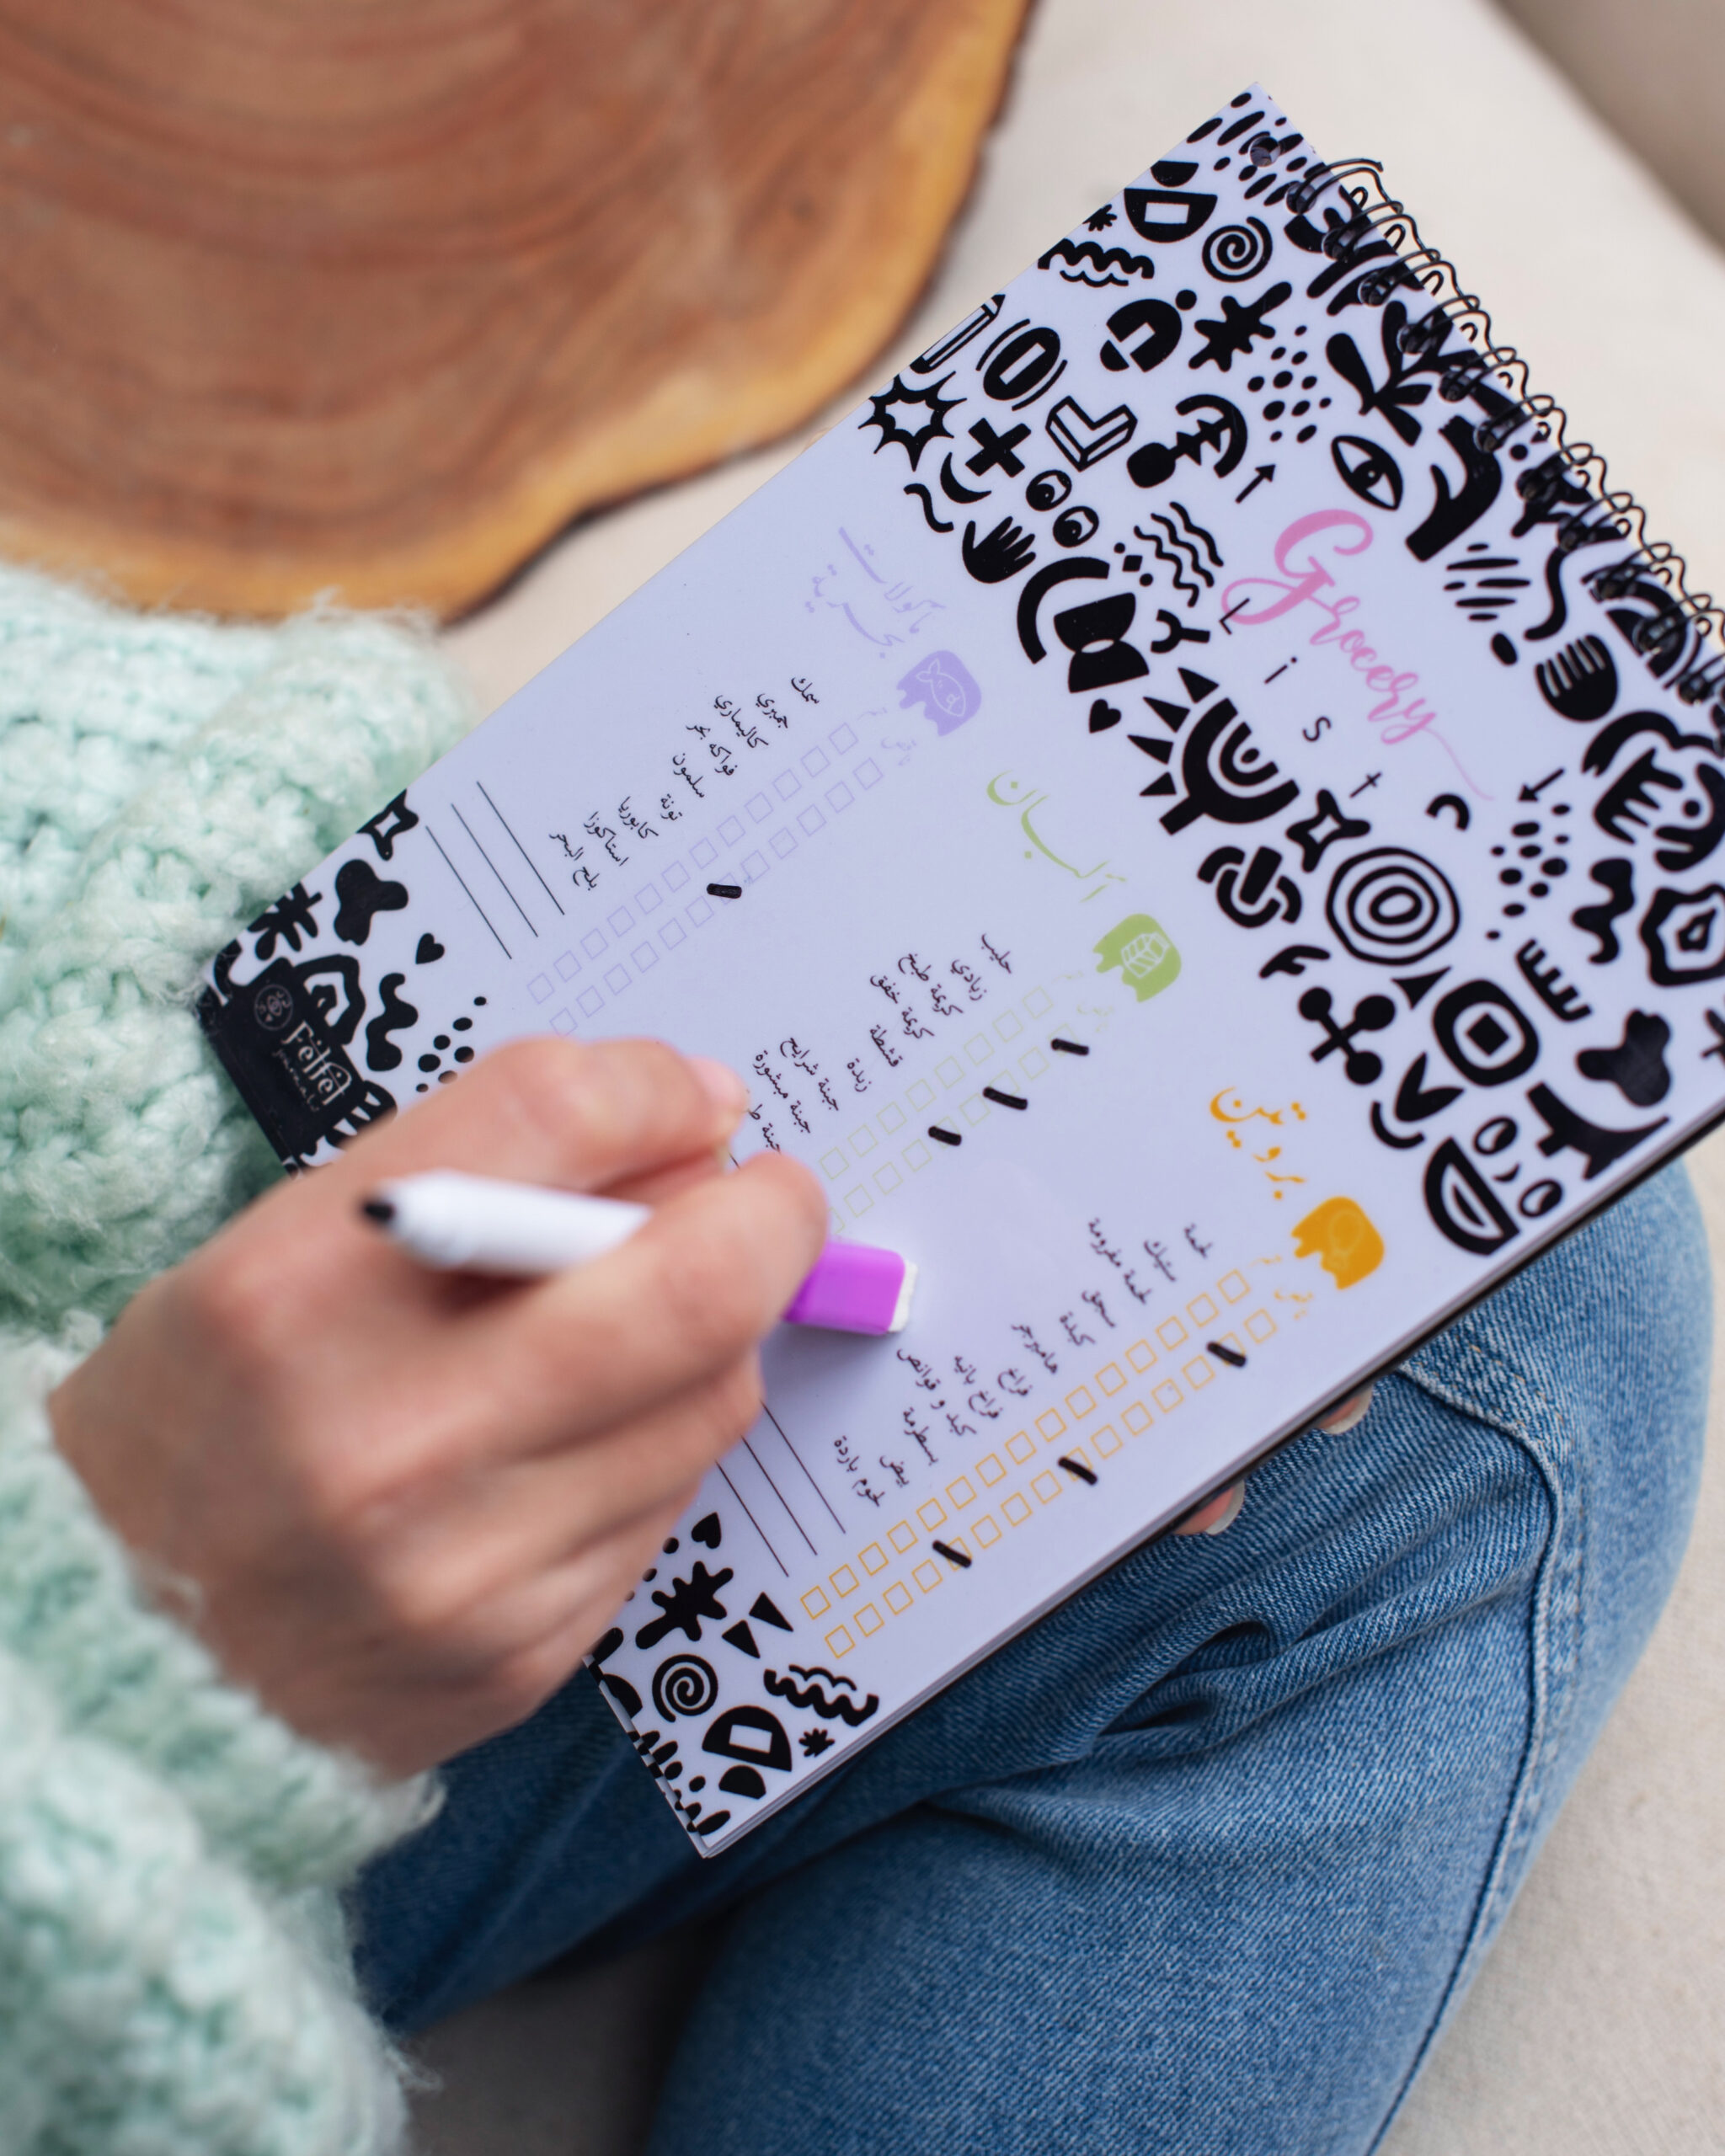 Grocery
List
بروتين
لحمة
ستيك
لحمة مفرومة
سجق
كبدة
هامبرجر
فراخ
فراخ بانيه
كبد و قوانص
بسطرمة
بيض
لحوم باردة
ألبان
حليب
زبادي
كريمة طبخ
كريمة خفق
قشطة
زبدة
جبنة شرايح
جبنة مبشورة
جبنة
مأكولات
بحرية
سمك
جمبري
كاليماري
فواكه بحر
سلمون
تونة
كابوريا
استاكوزا
بلح البحر
Felfel
journals